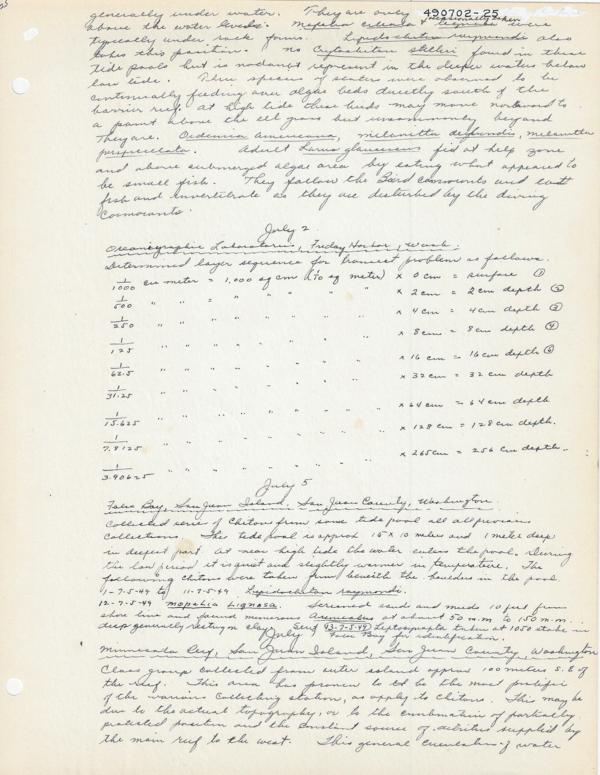 490702-25
generally under water. They are only occasionally taken
above the water levels. Mopalia ciliata & lignosa were
typically under rock forms. Lepidochitan raymondi also
takes this position. No Cryptochiton stelleri found in these
tide pools but is no doubt represent in the deeper waters below
low tide. Three species of scoter were observed to be
continually feeding over algae beds directly south of the
barrier reef. At high tide these birds may move northward to
a point above the eel grass but uncommonly beyond
They are. Oedemia americana, melanitta deglandis, melanitta
perspicillata. Adult Larus glaucescens fed at kelp zone
and above submerged algae area by eating what appeared to
be small fish. They follow the Bard cormorants and eat
fish and invertebrate as they are disturbed by the diving
Cormorants.
July 2
Oceanographic Laboratories, Friday Harbor, Wash.
Determined layer sequence for transect problem as follows.
1/1000 cu meter = 1,000 sq cm (1/10 sq meter) × 0 cm = surface (1)
1/500 " " = " " " " " × 2 cm = 2 cm depth (2)
1/250 " " " " " " × 4 cm = 4 cm depth (3)
1/125 " " " " " " × 8 cm = 8 cm depth (4)
1/62.5 " " " " " " × 16 cm = 16 cm depth (5)
1/31.25 " " " " " " × 32 cm = 32 cm depth
1/15.625 " " " " " " × 64 cm = 64 cm depth
1/7.8125 " " " " " " × 128 cm = 128 cm depth.
1/3.90625 " " " " " " × 265 cm = 256 cm depth.
July 5
False Bay, San Juan Island, San Juan County, Washington.
Collected series of Chitons from same tide pool all all previous
Collections. This tide pool is approx 15 × 10 meters and 1 meter deep
in deepest part. At near high tide the water enters the pool. During
the low period it is quiet and slightly warmer in temperature. The
following chitons were taken from beneath the boulders in the pool.
1-7-5-49 to 11-7-5-49 Lepidochitan raymondi.
12-7-5-49 Mopalia lignosa. Screened sand and muds 10 feet from
shore line and found numerous Arenicolus at about 50 m.m. to 150 m.m.
deep generally resting on clay. Series 43-7-5-49 Leptosynapta taken at 1050 stake in
False Bay for identification.
July
Minnesota Reef, San Juan Island, San Juan County, Washington
Class group collected from outer island approx 100 meters S.E of
the reef. This area has proven to be the most prolific
of the various Collecting station, as apply to chitons. This may be
due to the actual topography, or to the combination of partially
protected position and the constant source of detritus supplied by
the main reef to the west. This general circulation of water